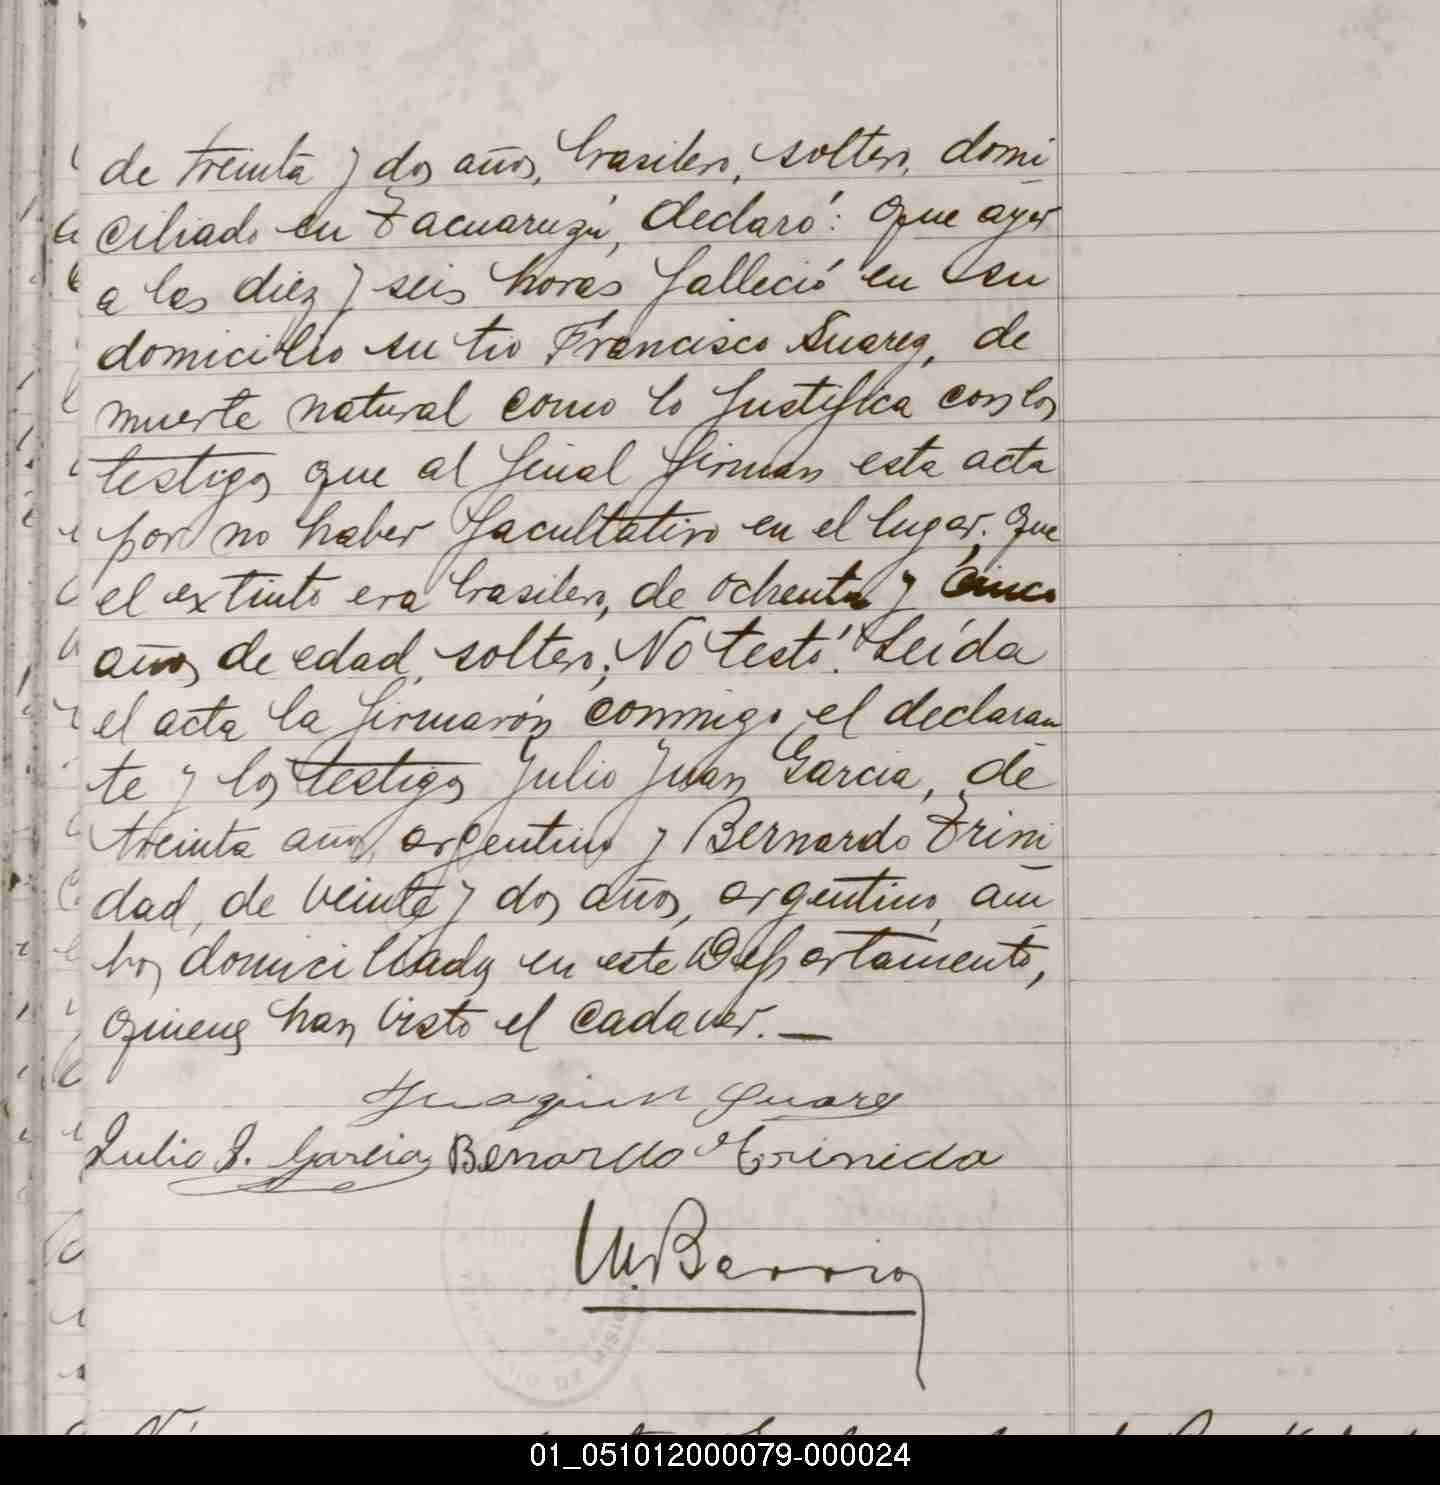 de treinta y dos años, brasilero, soltero, domi
ciliado en Tacuaruzú, declaró: Que ayer
a las diez y seis horas falleció en su
domicilio su tio Francisco Suarez, de
muerte natural como lo justifica con los
testigos que al final firman esta acta
por no haber facultativo en el lugar. Que
el extinto era brasilero, de ochenta y cinco
años de edad, soltero; No testó. Leída
el acta la firmarón conmigo el declaran
te y los testigos Julio Juan Garcia, de
treinta años, argentino y Bernardo Trini
dad, de veinte y dos años, argentino, am
bos domiciliados en este Departamento,
quienes han visto el cadaver. —
Juaquin Suarez
Julio J. Garcia Benardo Trinida
M. Barrios
DE MISIONES
01_051012000079-000024